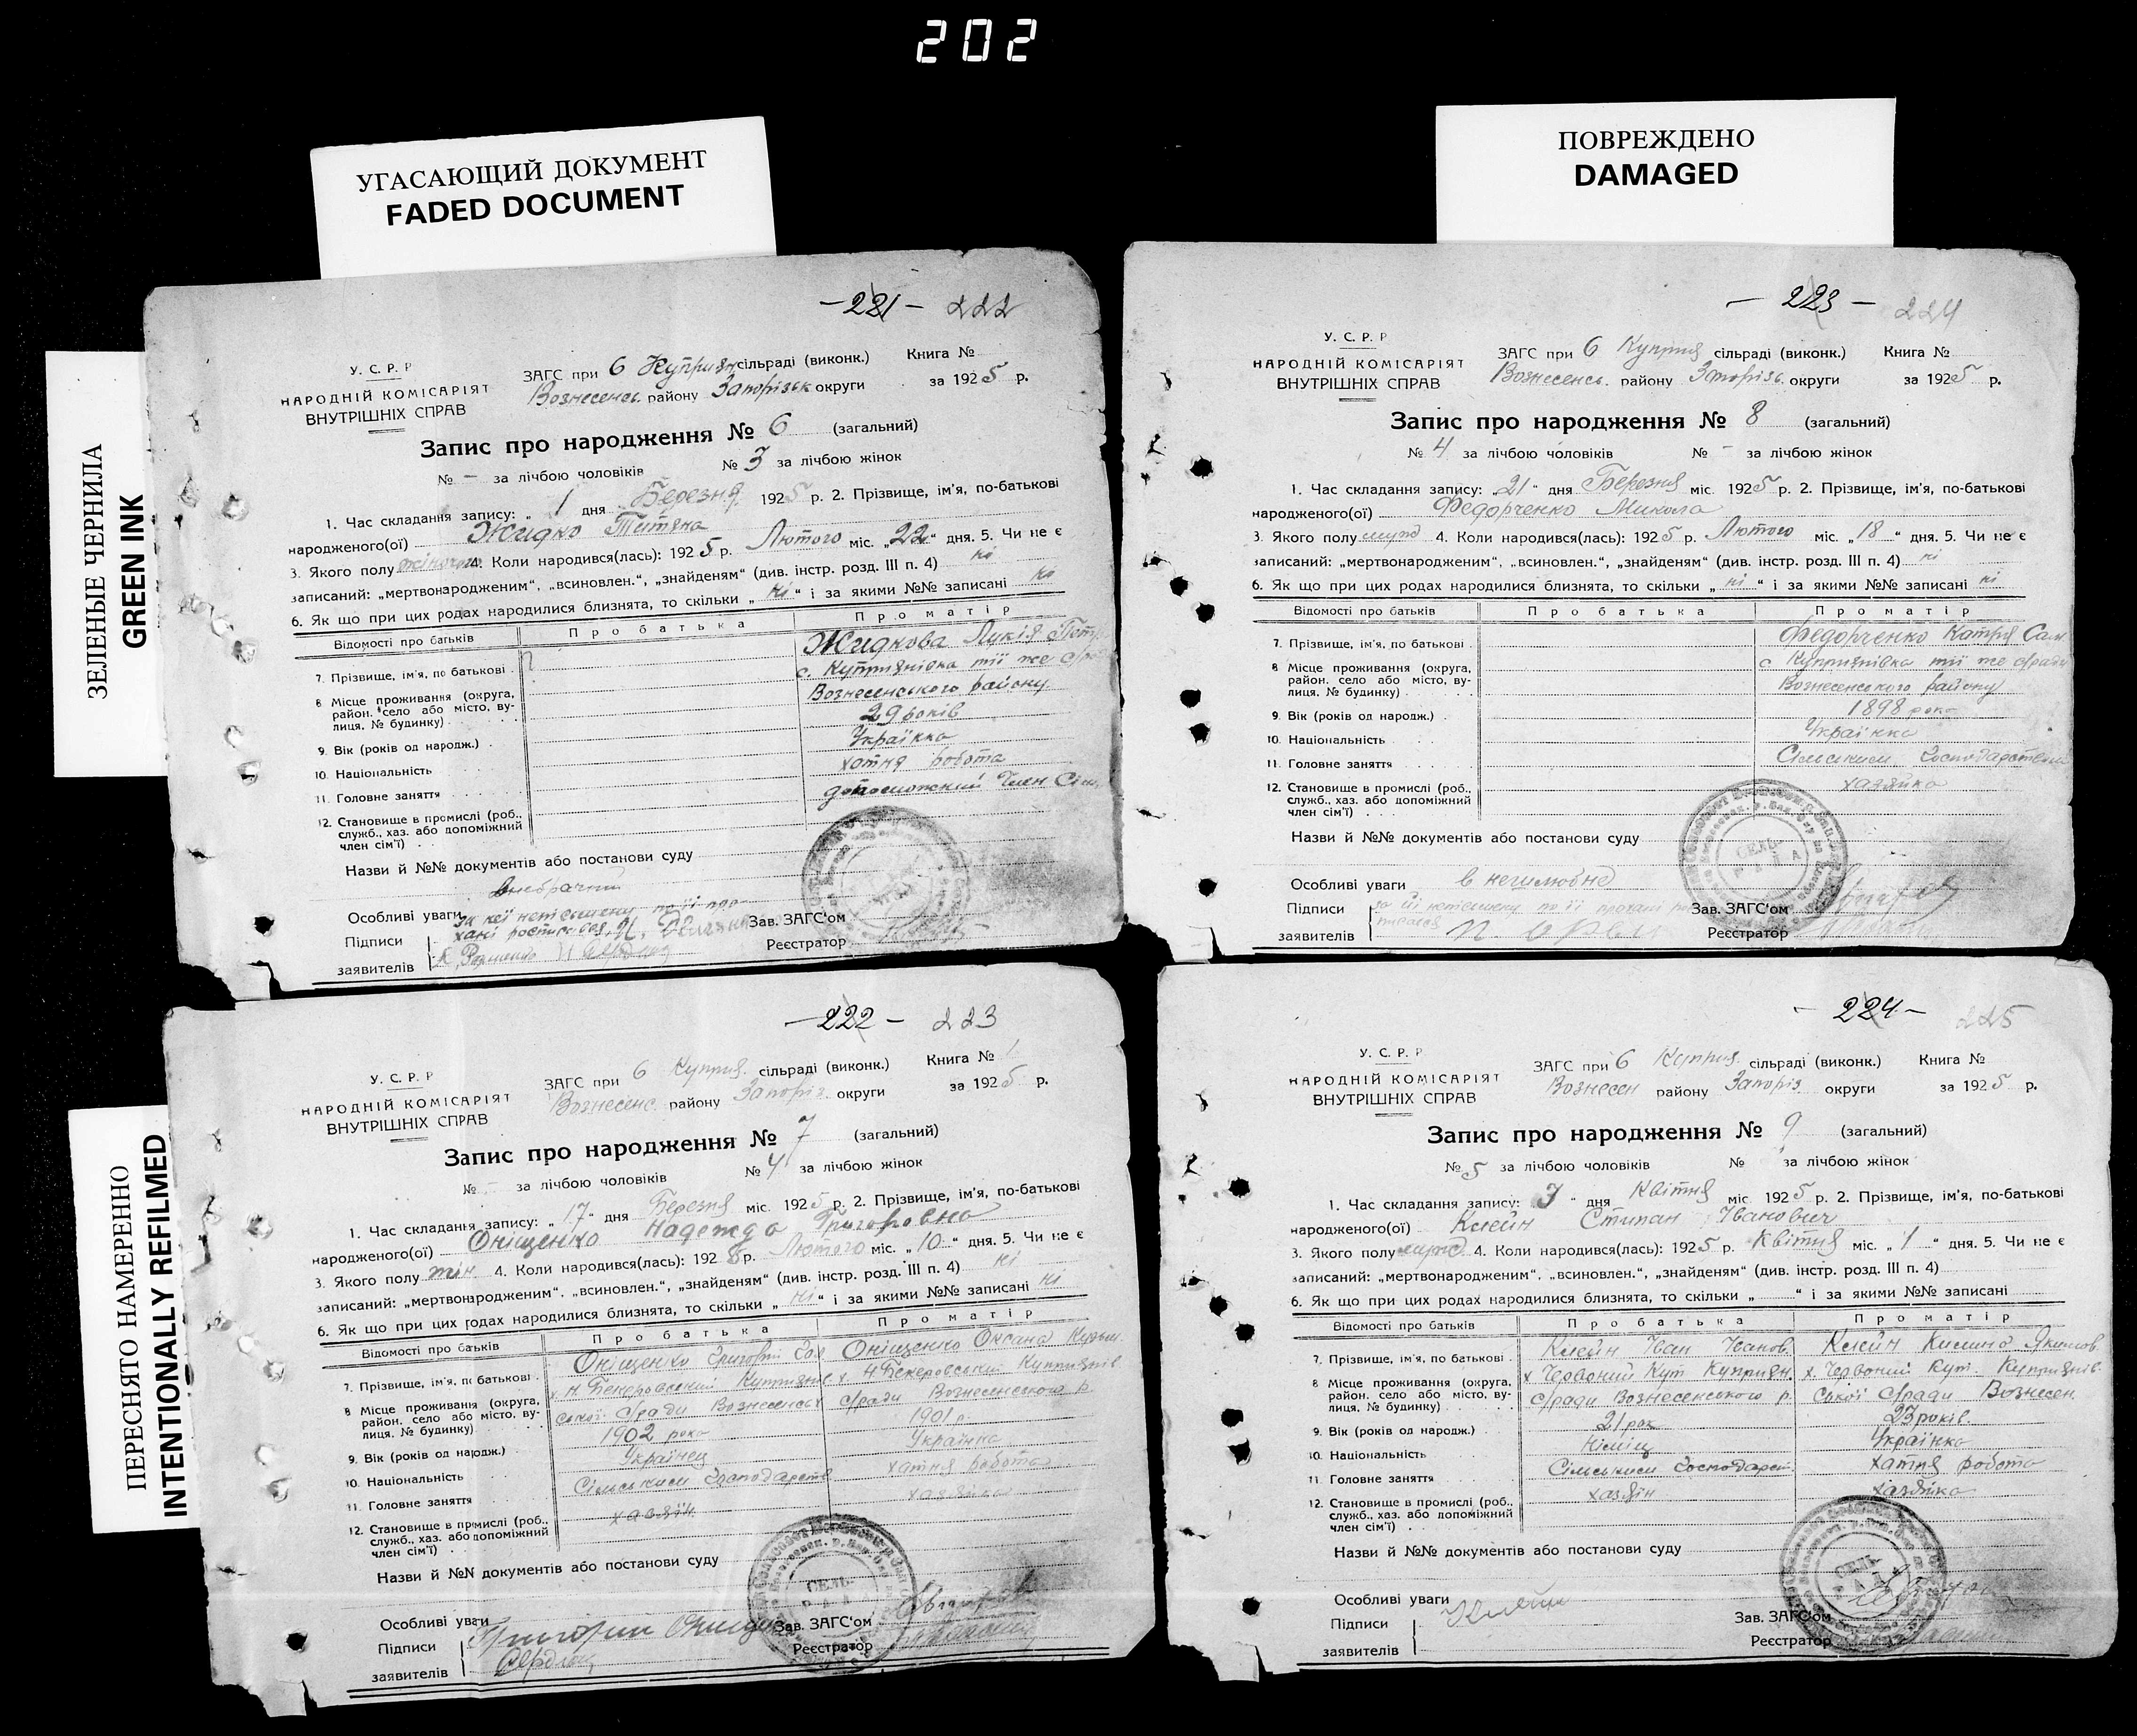 202
УГАСАЮЩИЙ ДОКУМЕНТ
FADED DOCUMENT
ПОВРЕЖДЕНО
DAMAGED
ЗЕЛЕНЫЕ ЧЕРНИЛА
GREEN INK
ПЕРЕСНЯТО НАМЕРЕННО
INTENTIONALLY REFILMED
—221— 222
У. С. Р. Р
НАРОДНІЙ КОМІСАРІЯТ
ВНУТРІШНІХ СПРАВ
ЗАГС при 6 Куприян сільраді (виконк.) Книга №
Вознесенс. району Запорізьк округи за 1925 р.
Запис про народження № 6 (загальний)
№ – за лічбою чоловіків № 3 за лічбою жінок
1. Час складання запису: „ 1 дня Березня 1925 р. 2. Прізвище, ім'я, по-батькові
народженого(ої) Жидко Тетяна
3. Якого полу жіноч. 4. Коли народився(лась): 1925 р. Лютого міс. „22“ дня. 5. Чи не є
записаний: „мертвонародженим“, „всиновлен.“, „знайденям“ (див. інстр. розд. III п. 4) ні
6. Як що при цих родах народилися близнята, то скільки „ ні “ і за якими №№ записані ні
Відомості про батьків Про батька Про матір
7. Прізвище, ім'я, по батькові Жидкова Лукія Петр
8 Місце проживання (округа, район. село або місто, вулиця, № будинку) с. Куприянівка тії же с/ради
Вознесенського району
9. Вік (років од народж.) 29 років
10. Національність Українка
11. Головне заняття хатня робота
12. Становище в промислі (роб., служб., хаз. або допоміжний член сім'ї) допоможний Член Сім.
Назви й №№ документів або постанови суду
Особливі уваги внебрачний
Підписи
заявителів
Зав. ЗАГС'ом
Реєстратор
—222— 223
У. С. Р. Р
НАРОДНІЙ КОМІСАРІЯТ
ВНУТРІШНІХ СПРАВ
ЗАГС при 6 Куприя. сільраді (виконк.) Книга № 1
Вознесенс. району Запоріз. округи за 1925 р.
Запис про народження № 7 (загальний)
№ – за лічбою чоловіків № 4 за лічбою жінок
1. Час складання запису: „17“ дня Березня міс. 1925 р. 2. Прізвище, ім'я, по-батькові
народженого(ої) Оніщенко Надежда Григоровна
3. Якого полу жін 4. Коли народився(лась): 1925 р. Лютого міс. „10“ дня. 5. Чи не є
записаний: „мертвонародженим“, „всиновлен.“, „знайденям“ (див. інстр. розд. III п. 4) ні
6. Як що при цих родах народилися близнята, то скільки „ ні “ і за якими №№ записані ні
Відомості про батьків Про батька Про матір
7. Прізвище, ім'я, по батькові Оніщенко Григорій Оніщенко Оксана Кузьм.
8 Місце проживання (округа, район. село або місто, вулиця, № будинку) х. Н. Бекеровський Куприянів х. Н Бекеровський Куприянів
ської с/ради Вознесенськ с/ради Вознесенського р.
9. Вік (років од народж.) 1902 рока 1901 р.
10. Національність Українец Українка
11. Головне заняття Сільськими Господарств хатня робота
12. Становище в промислі (роб., служб., хаз. або допоміжний член сім'ї) хазяїн хазяйка
Назви й №№ документів або постанови суду
Особливі уваги
Підписи Григорий
заявителів
Зав. ЗАГС'ом
Реєстратор
— 223 — 224
У. С. Р. Р
НАРОДНІЙ КОМІСАРІЯТ
ВНУТРІШНІХ СПРАВ
ЗАГС при 6 Куприя сільраді (виконк.) Книга №
Вознесенс. району Запорізь. округи за 1925 р.
Запис про народження № 8 (загальний)
№ 4 за лічбою чоловіків № – за лічбою жінок
1. Час складання запису: „21“ дня Березня міс. 1925 р. 2. Прізвище, ім'я, по-батькові
народженого(ої) Федорченко Микола
3. Якого полу мужс 4. Коли народився(лась): 1925 р. Лютого міс. „18“ дня. 5. Чи не є
записаний: „мертвонародженим“, „всиновлен.“, „знайденям“ (див. інстр. розд. III п. 4) ні
6. Як що при цих родах народилися близнята, то скільки „ ні “ і за якими №№ записані ні
Відомості про батьків Про батька Про матір
7. Прізвище, ім'я, по батькові Федорченко Катря Сам.
8 Місце проживання (округа, район. село або місто, вулиця, № будинку) с Куприянівка тії же с/ради
Вознесенского району
9. Вік (років од народж.) 1898 рока
10. Національність Українка
11. Головне заняття Сільськими Господарством
12. Становище в промислі (роб., служб., хаз. або допоміжний член сім'ї) хазяйка
СЕЛЬ
Назви й №№ документів або постанови суду
Особливі уваги
Підписи
заявителів
Зав. ЗАГС'ом
Реєстратор
— 224 — 225
У. С. Р. Р
НАРОДНІЙ КОМІСАРІЯТ
ВНУТРІШНІХ СПРАВ
ЗАГС при 6 Куприя. сільраді (виконк.) Книга №
Вознесен району Запоріз. округи за 1925 р.
Запис про народження № 9 (загальний)
№ 5 за лічбою чоловіків № за лічбою жінок
1. Час складання запису: 3 “ дня Квітня міс. 1925 р. 2. Прізвище, ім'я, по-батькові
народженого(ої) Клейн Стипан Іванович
3. Якого полу мужс 4. Коли народився(лась): 1925 р. Квітня міс. „1“ дня. 5. Чи не є
записаний: „мертвонародженим“, „всиновлен.“, „знайденям“ (див. інстр. розд. III п. 4)
6. Як що при цих родах народилися близнята, то скільки „ “ і за якими №№ записані
Відомості про батьків Про батька Про матір
7. Прізвище, ім'я, по батькові Клейн Іван Іванов. Клейн Килина Якимов.
8 Місце проживання (округа, район. село або місто, вулиця, № будинку) х Червоний Кут Куприян. х. Червоний Кут Куприянів
с/ради Вознесенського р. ської с/ради Вознесен
9. Вік (років од народж.) 21 рок 23 років
10. Національність Німіц Українка
11. Головне заняття Сільськими Господарст. хатня робота
12. Становище в промислі (роб., служб., хаз. або допоміжний член сім'ї) хазяїн хазяйка
СЕЛЬ
Назви й №№ документів або постанови суду
Особливі уваги
Підписи Клейн
заявителів
Зав. ЗАГС'ом
Реєстратор